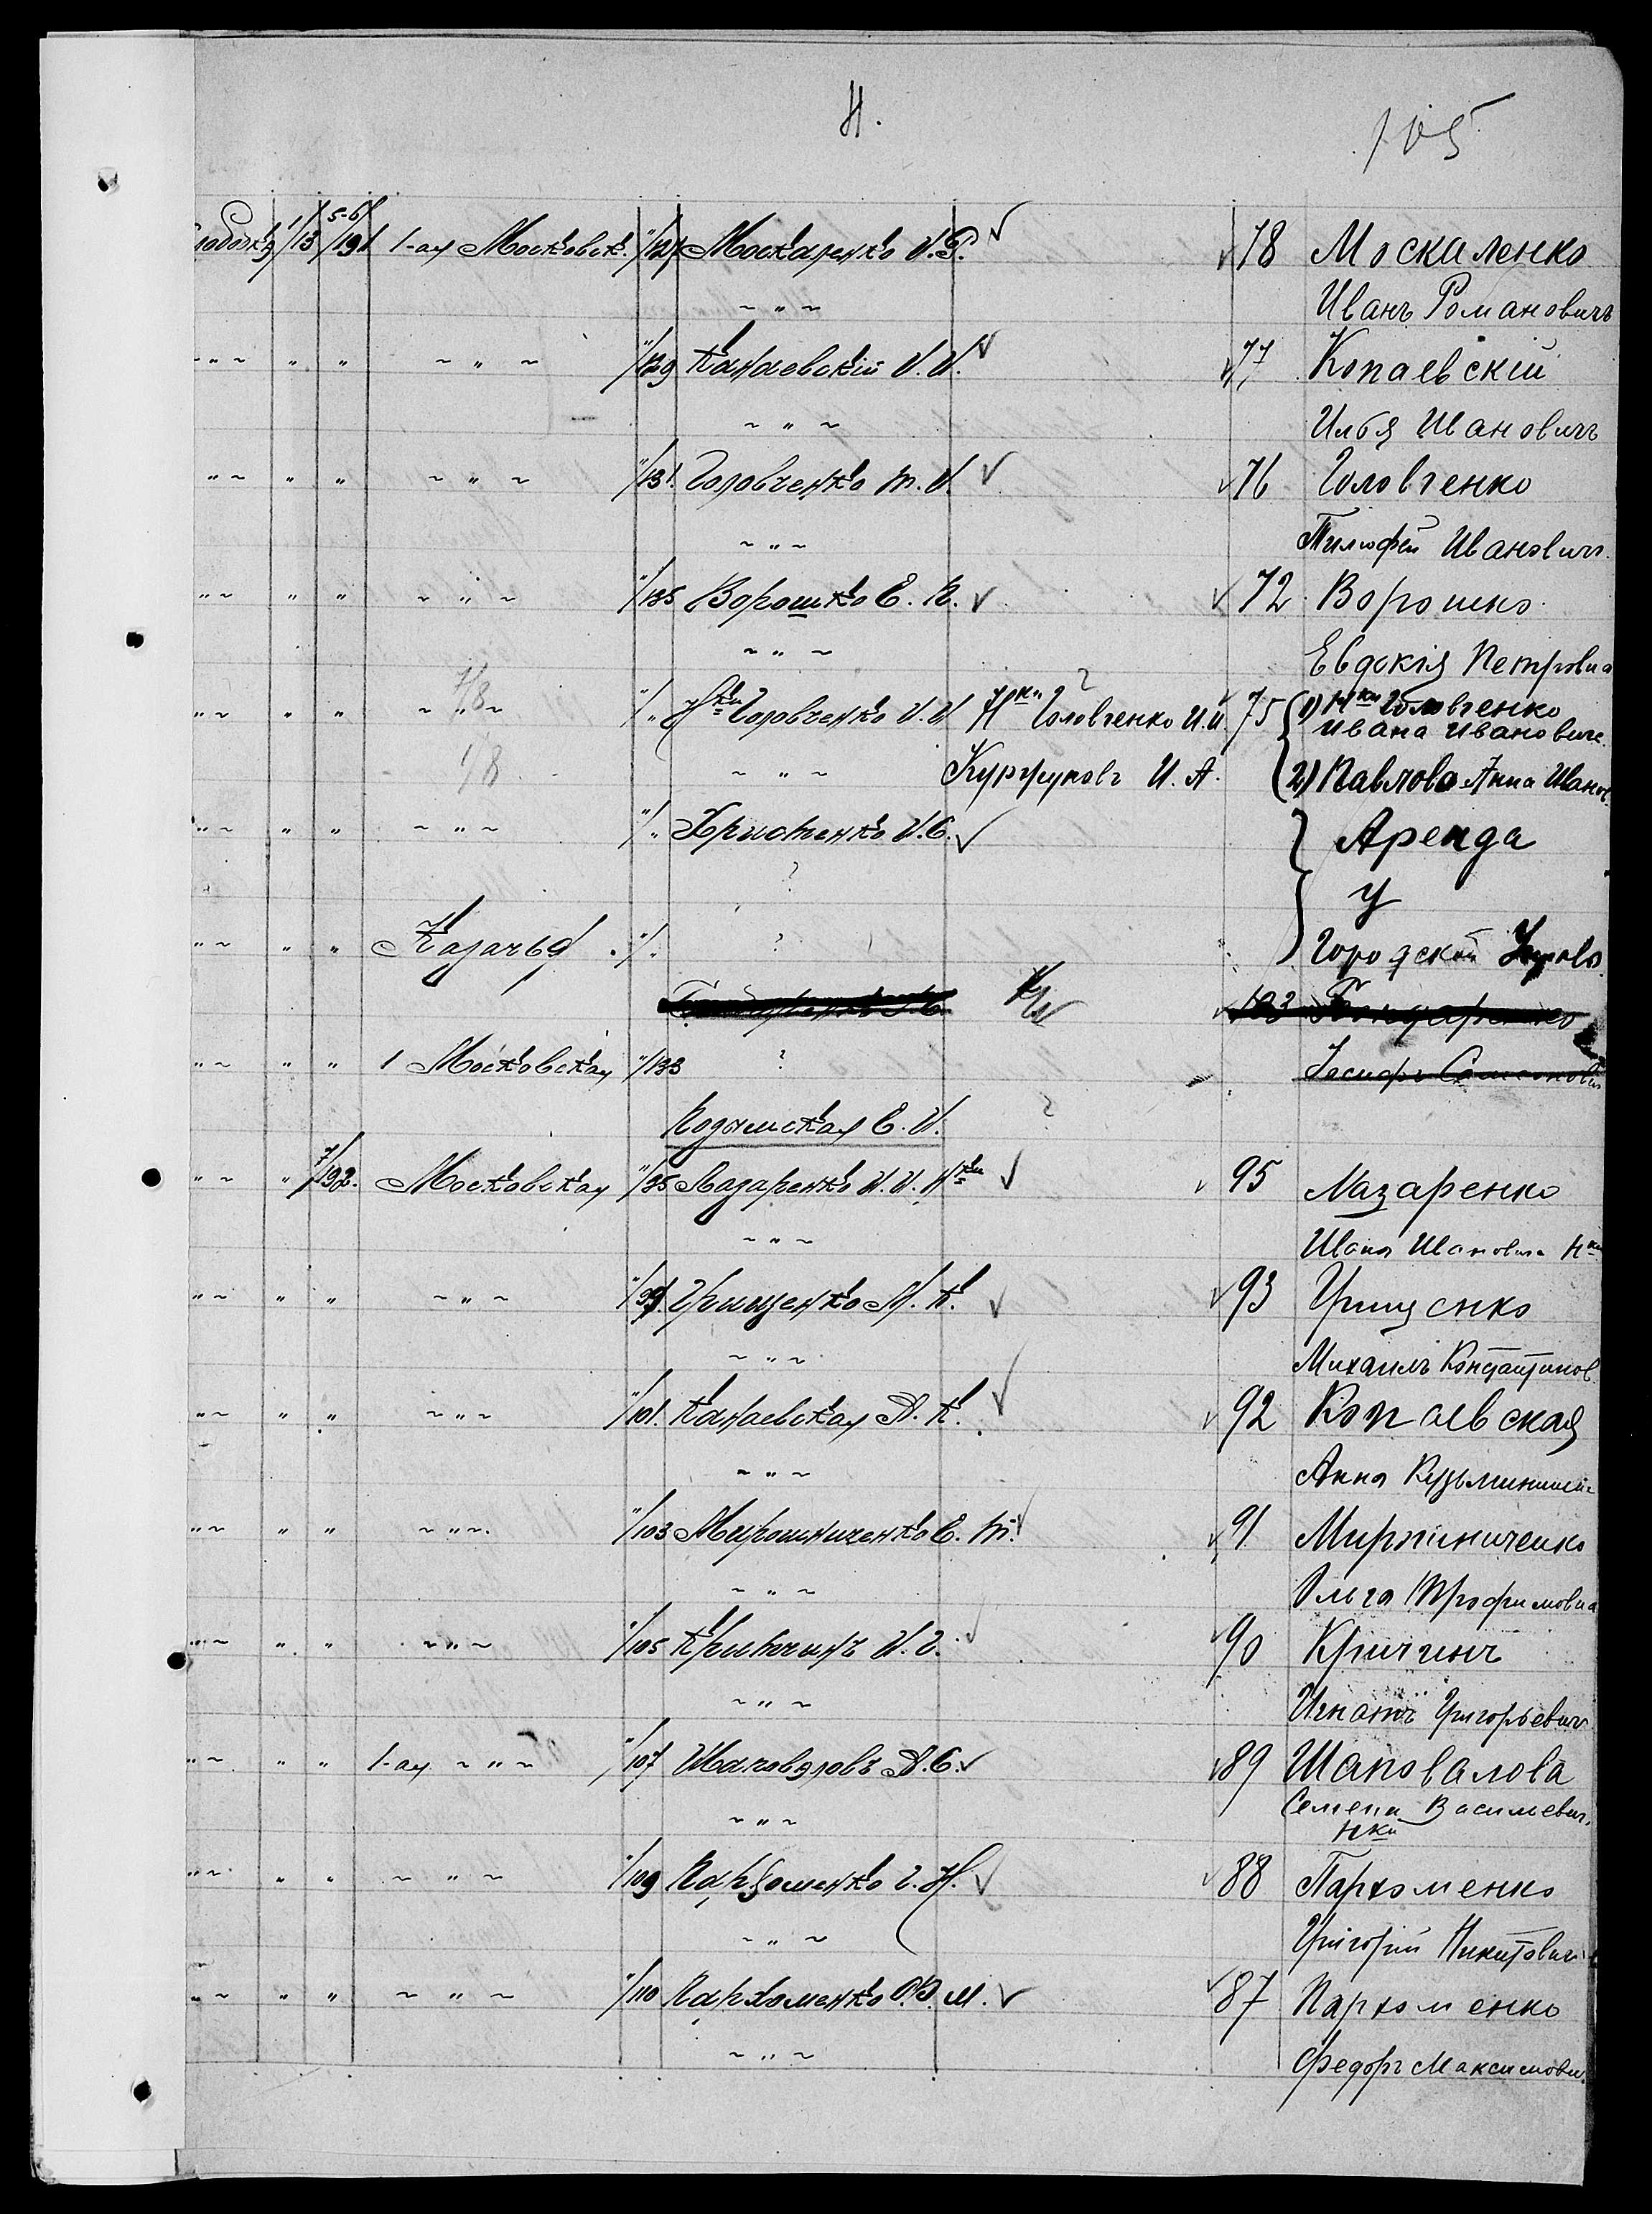 Н.
105
1/13 5-6/191 1-ая Московск. "/127 Москаленко И.Р. ✓ ✓78 Москаленко
~ " ~ Иванъ Романовичъ
~ " ~ " " ~ " ~ "/129 Канаевскій И.И. ✓ ✓77 Копаевскій
~ " ~ Илья Ивановичъ
" ~ " " ~ " ~ "/131. Головченко Т.И. ✓ ✓76 Головченко
~ " ~ Тимофей Ивановичъ
" ~ " " ~ " ~ "/135 Ворошко Е. П. ✓ ✓72 Ворошко
~ " ~ Евдокія Петровна
1/8
" ~ " " ~ " ~ "/" Н-ки Головченко И.И. Н-ки Головченко И.И. ✓75 1) Н-ки Головченко
Ивана Ивановича
1/8 ~ " ~ И. А. 2) Павлова Анна Иванов.
" ~ " " ~ " ~ "/" Христенко И.С. ✓ Аренда
? у
" ~ " " Казачья "/" ? Городской Управы
✓103 Бондаренко
" ~ " " 1 Московская "/133 ? Іосифъ
Е. И. ?
" ~ " 7/192. Московская "/95 Лазаренко И.И. Н-ки ✓ ✓95 Лазаренко
~ " ~ Ивана Ивановича Н-ки
" ~ " " ~ " ~ "/99. Грищенко М. К. ✓ ✓93 Грищенко
~ " ~ Михаилъ Константинов.
" ~ " " ~ " ~ "/101. Канаевская А. К. ✓ ✓92 Копаевская
~ " ~ Анна
" ~ " " ~ " ~ "/103 Мирошниченко Е. Т. ✓ ✓91 Мирошниченко
~ " ~ Ольга Трофимовна
" ~ " " ~ " ~ "/105 И.Г. ✓ ✓90 Кричинъ
~ " ~ Игнатъ Григорьевичъ
" ~ " " 1-ая ~ " ~ "/107 Шаповаловъ А.С. ✓ ✓89 Шаповалова
~ " ~ Семена Васильевич.
Н-ки
" ~ " " ~ " ~ "/109 Пархоменко Г. Н. ✓ ✓88 Пархоменко
~ " ~ Григорій Никитович
" ~ " " ~ " ~ "/110 Пархоменко Ф. М. ✓ ✓87 Пархоменко
~ " ~ Федоръ Максимови.